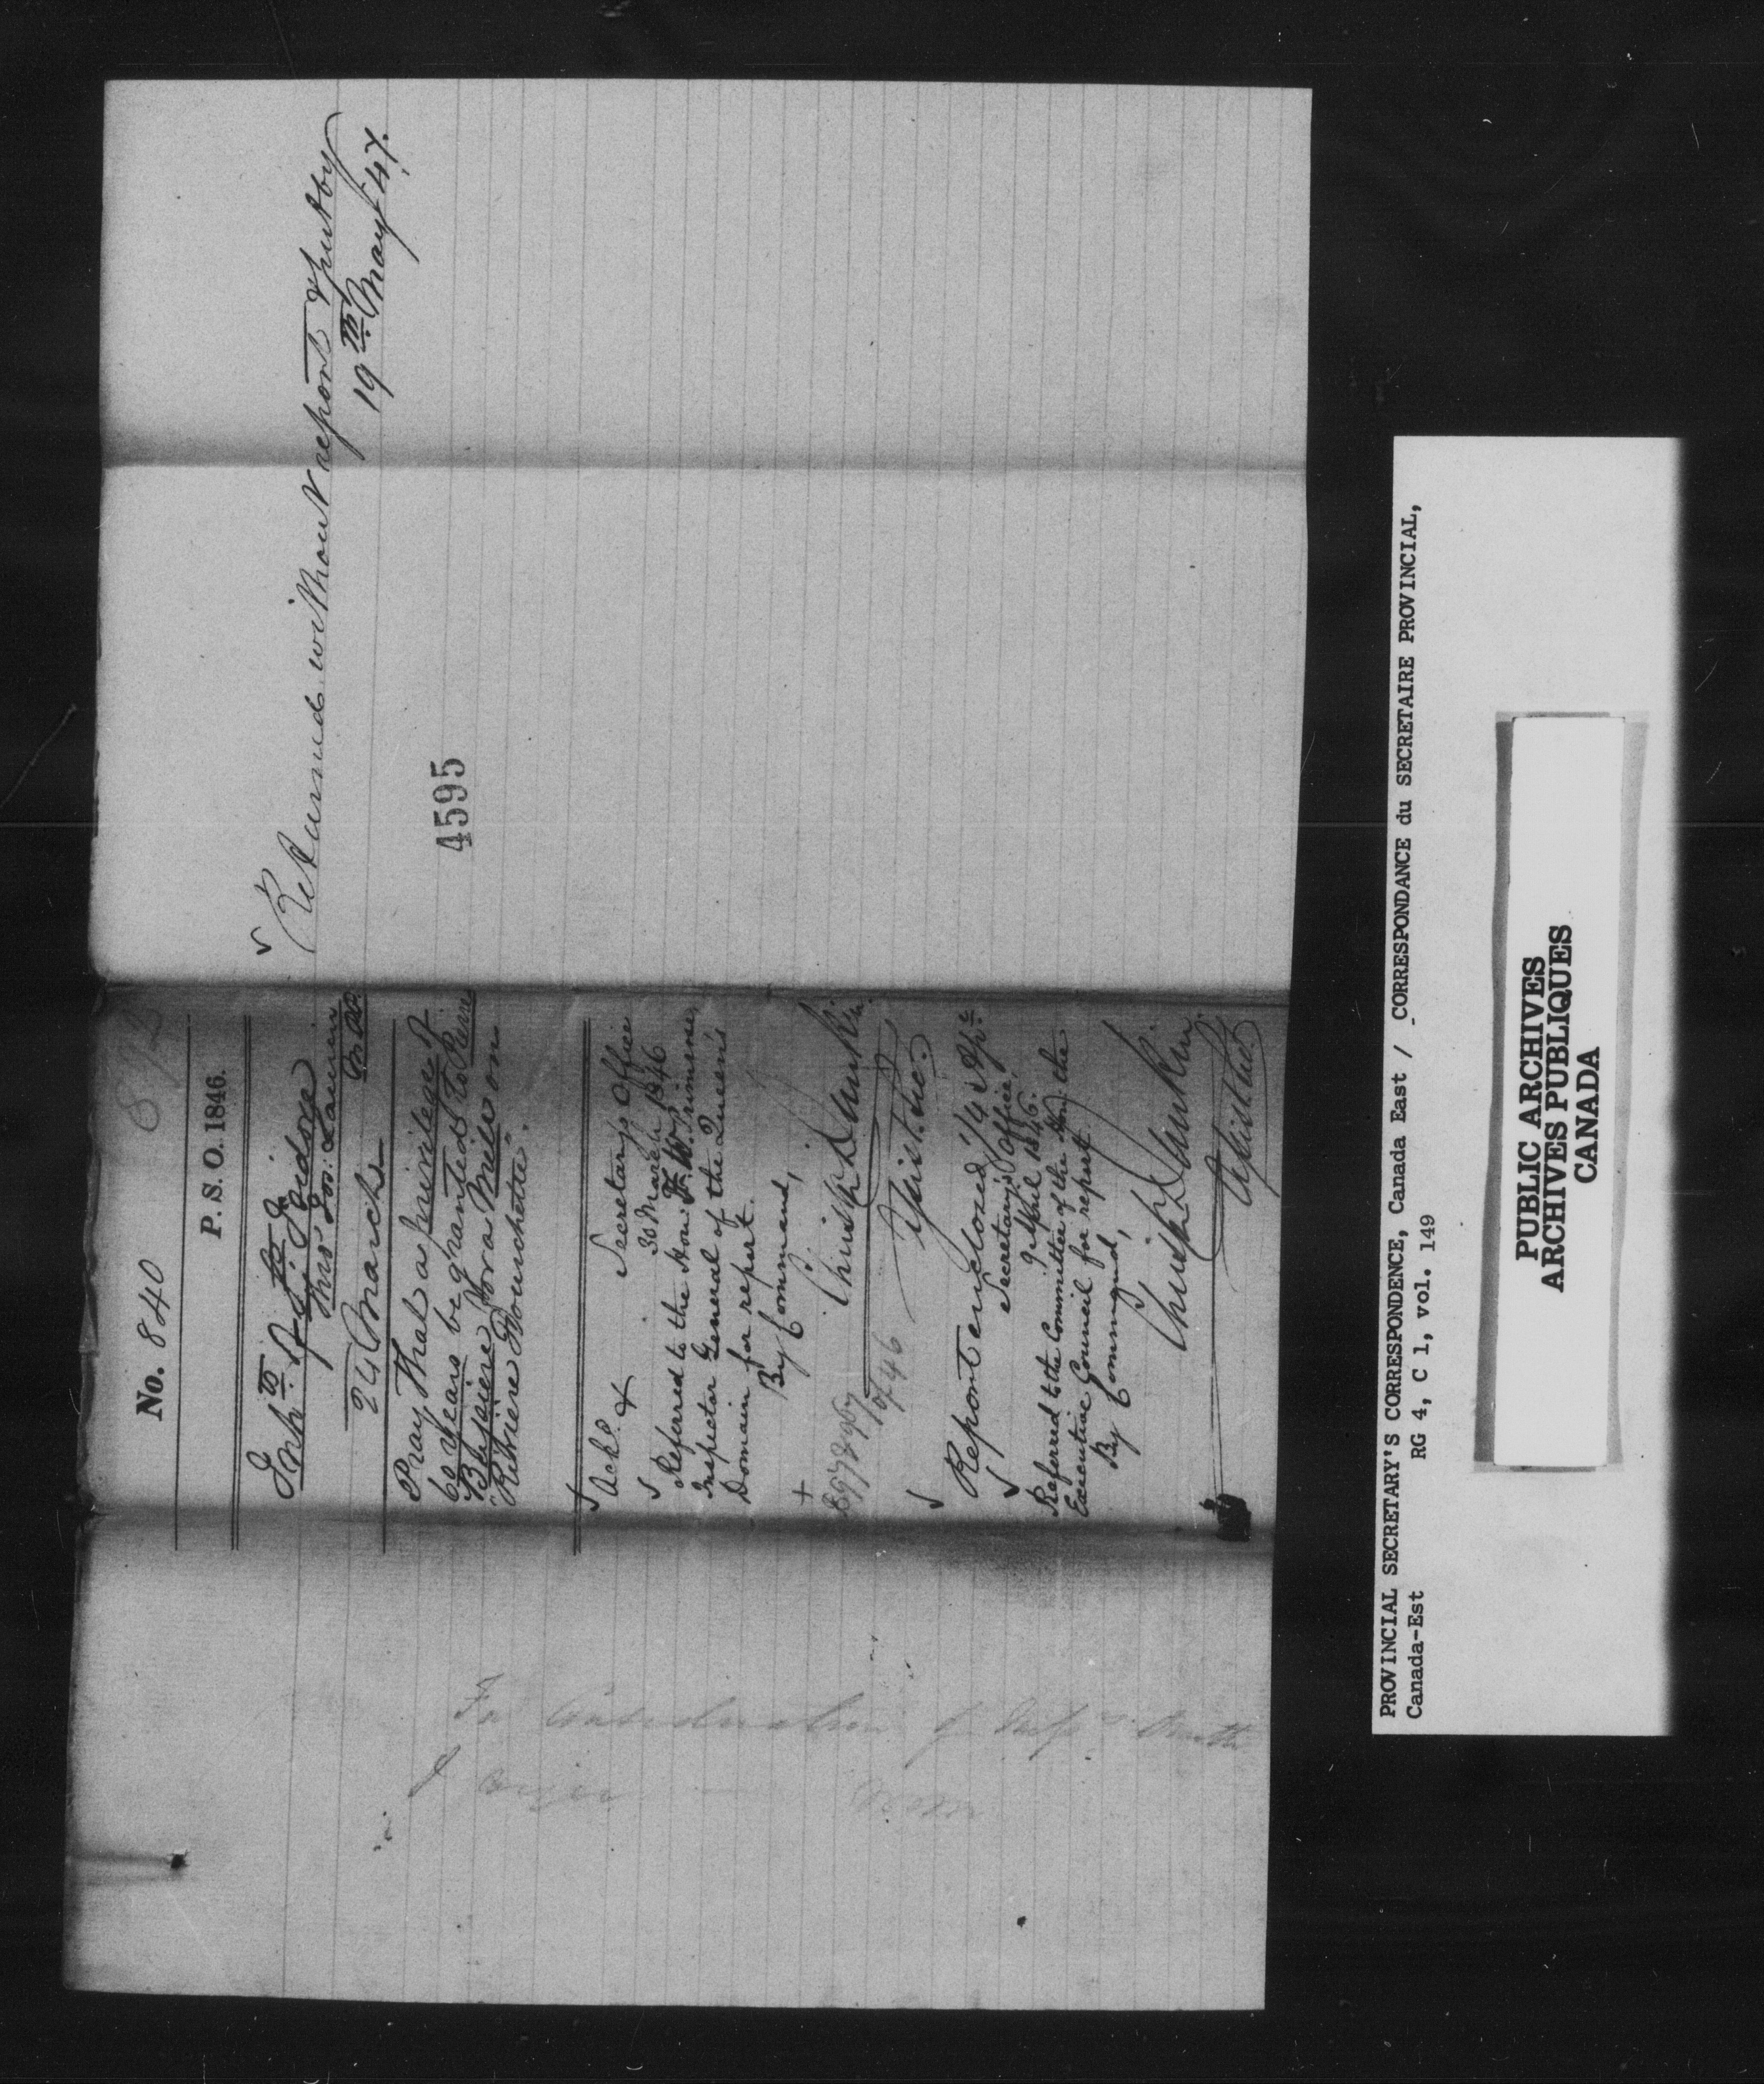 No. 840
P. S. O. 1846.
Inhts of St
Thro' Hon:
M.P.P.
24 March
Pray that a privilege of
60 years be granted to Pierre
for a Mill on
"Rivière Bourchette".
Ackd. &
Secretary's Office
30 March 1846
Referred to the Hon: F. W. Primrose,
Inspector General of the Queen's
Domain for report.
By Command,
Christr Dunkin
Assist. Sec.
897 of 46
Report enclosed 1/4 Apl.
Secretary's Office
April 1846.
Referred to the Committee of the Hon the
Executive Council for report
By Command,
Christr Dunkin
Assist. Sec.
Returned without report & put by
19th May 47.
4595
For Consideration of
PROVINCIAL SECRETARY'S CORRESPONDENCE, Canada East / CORRESPONDANCE du SECRETAIRE PROVINCIAL,
Canada-Est RG 4, C 1, vol. 149
PUBLIC ARCHIVES
ARCHIVES PUBLIQUES
CANADA